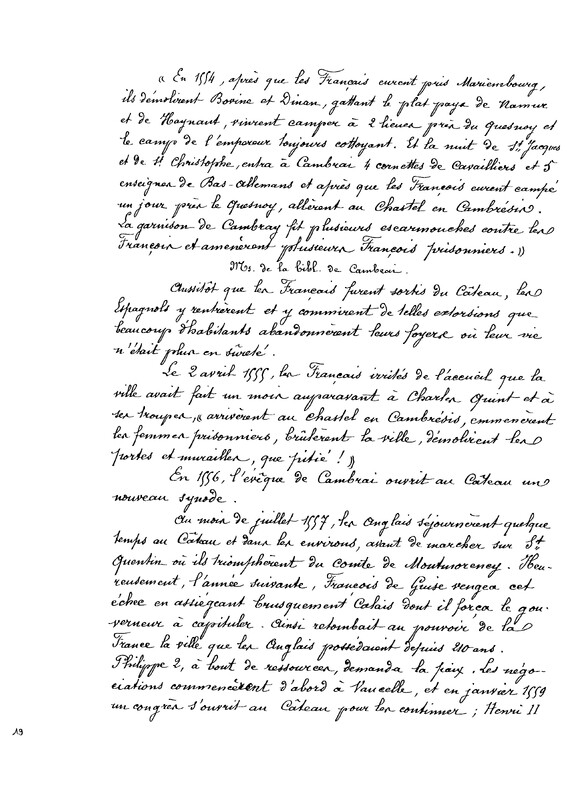 « En 1554, après que les Français eurent pris Mariembourg,
ils démolirent Bovine et Dinan, gattant le plat pays de Namur
et de Haynaut, vinrent camper à 2 lieues près du Quesnoy et
le camp de l'empereur toujours cottoyant. Et la nuit de St Jacques
et de St Christophe, entra à Cambrai 4 cornettes de Cavailliers et 5
enseignes de Bas-Allemans et après que les François eurent campé
un jour près le Quesnoy, allèrent au Chastel en Cambrésis.
La garnison de Cambray fit plusieurs escarmouches contre les
François et amenèrent plusieurs François prisonniers. »
Ms. de la bibl. de Cambrai.
Aussitôt que les Français furent sortis du Câteau, les
Espagnols y rentrèrent et y commirent de telles extorsions que
beaucoup d'habitants abandonnèrent leurs foyers où leur vie
n'était plus en sûreté.
Le 2 avril 1555, les Français irrités de l'accueil que la
ville avait fait un mois auparavant à Charles Quint et à
ses troupes, « arrivèrent au chastel en Cambrésis, emmenèrent
les femmes prisonniers, brûlèrent la ville, démolirent les
portes et murailles, que pitié ! »
En 1556, l'évêque de Cambrai ouvrit au Câteau un
nouveau synode.
Au mois de juillet 1557, les Anglais séjournèrent quelque
temps au Câteau et dans les environs, avant de marcher sur St
Quentin où ils triomphèrent du comte de Montmorency. Heu-
reusement, l'année suivante, François de Guise vengea cet
échec en assiégeant brusquement Calais dont il força le gou-
verneur à capituler. Ainsi retombait au pouvoir de la
France la ville que les Anglais possédaient depuis 210 ans.
Philippe 2, à bout de ressources, demanda la paix. Les négo-
ciations commencèrent d'abord à Vaucelle, et en janvier 1559
un congrès s'ouvrit au Câteau pour les continuer ; Henri II
19